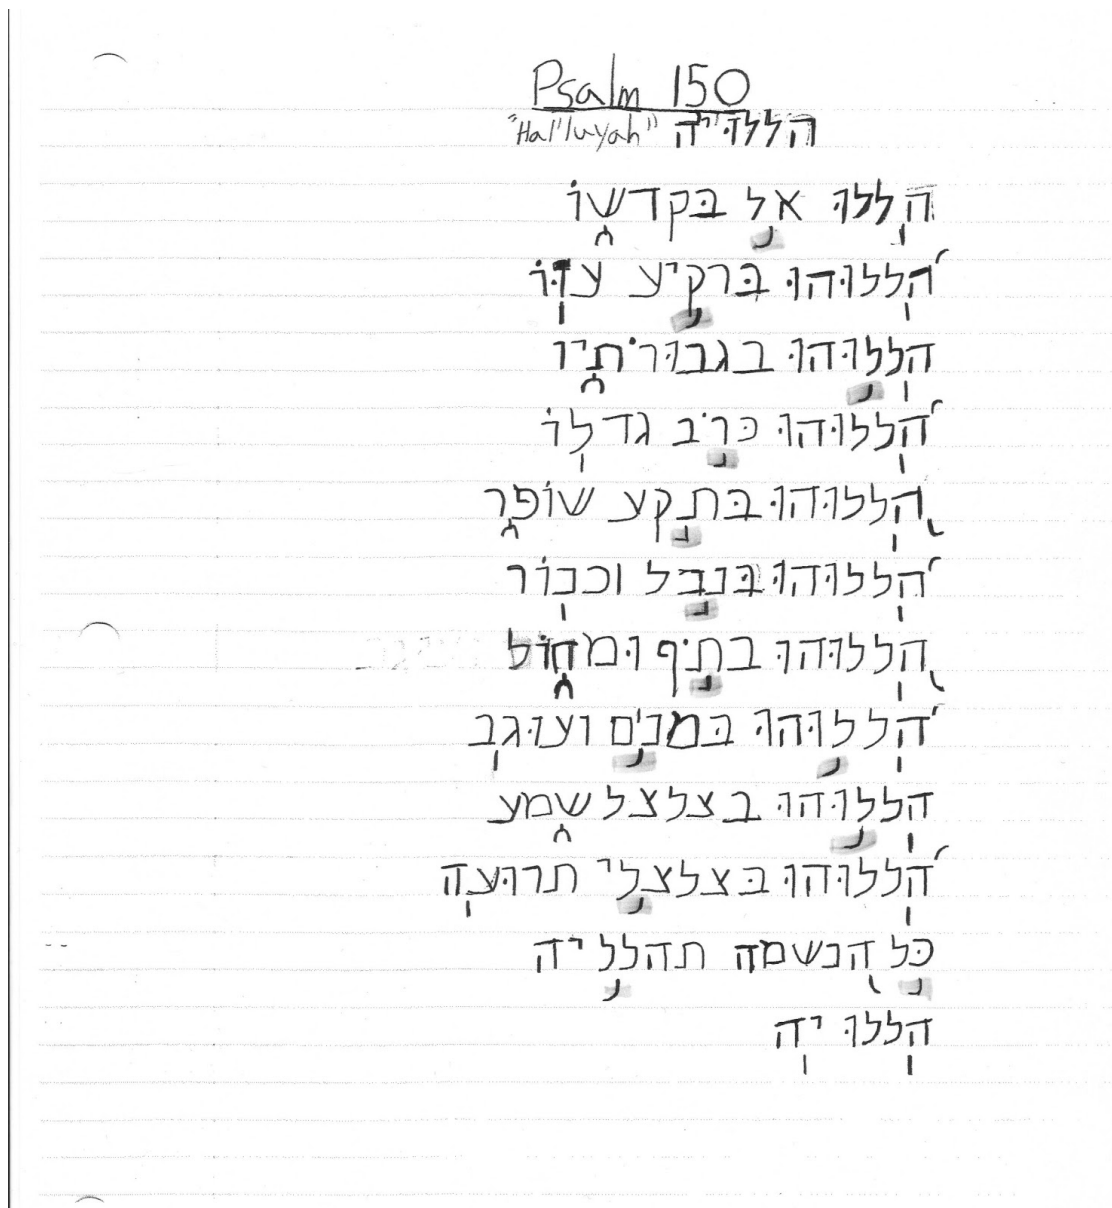 Psalm 150
"Hal'luyah" הללוּיה
הללוּ אל בּקדשוֹ
הללוּהוּ בּרקיע עזּוֹ
הללוּהוּ בגבוּרתיו
הללוּהוּ כּרב גדלוֹ
הללוּהוּ בּתקע שוֹפר
הללוּהוּ בּנבל וכנוֹר
הללוּהוּ בתף וּמחוֹל
הללוּהוּ בּמנים ועוּגב
הללוּהוּ בצלצל שמע
הללוּהוּ בּצלצלי תרוּעה
כּל הנשמה תהלל יה
הללוּ יה